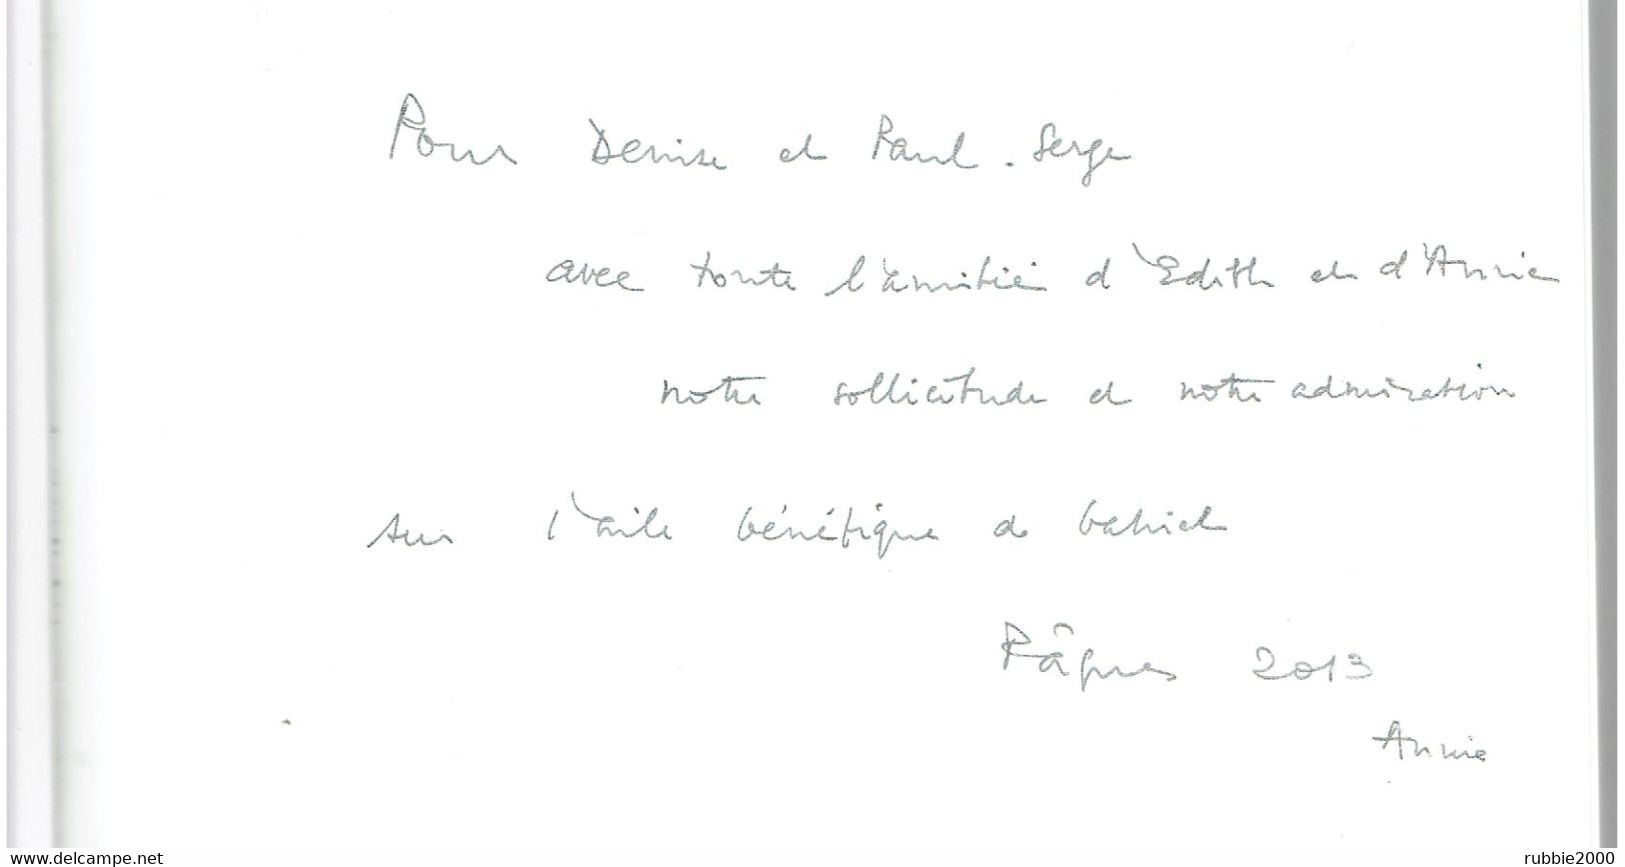 Pour Denise et Paul. Serge
avec toute l'amitié d'Edith et d'Annie
notre sollicitude et notre admiration
sur l'aile bénéfique de Gabriel
Pâques 2013
Annie
www.delcampe.net
rubbie2000